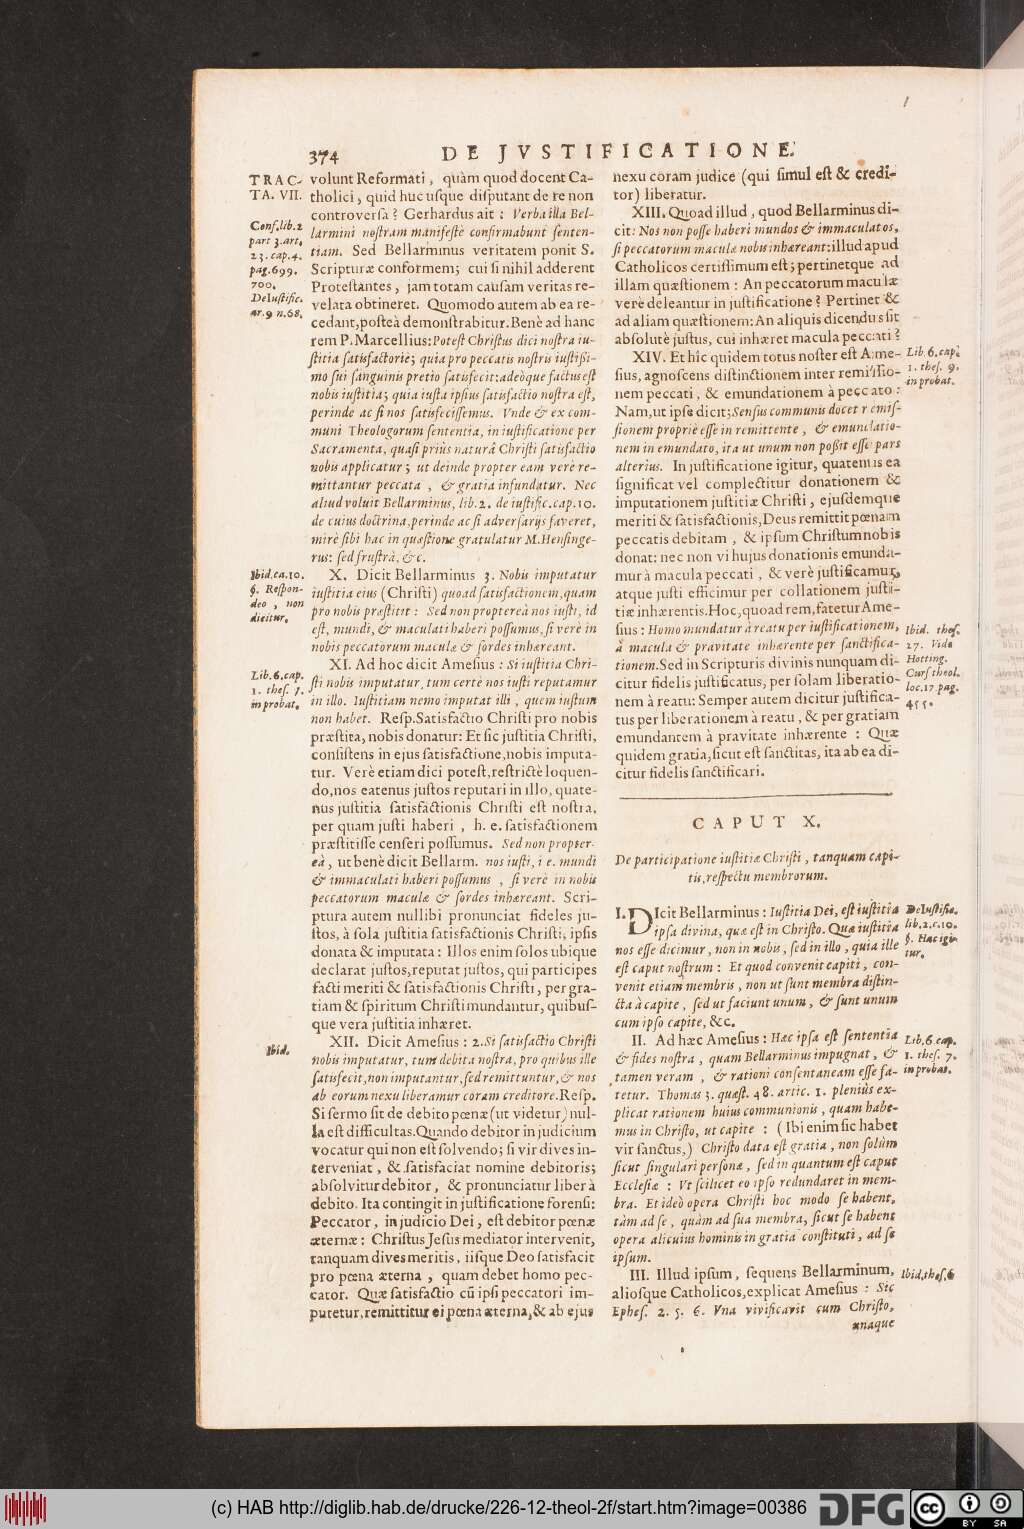 374
DE JVSTIFICATIONE.
TRAC-
TA. VII.
Conf. lib. 2
part 3. art.
23. cap. 4.
pag. 699.
700.
De Iustific.
ar. 9 n. 68.
volunt Reformati, quàm quod docent Ca-
tholici, quid huc usque disputant de re non
controversa? Gerhardus ait: Verba illa Bel-
larmini nostram manifestè confirmabunt senten-
tiam. Sed Bellarminus veritatem ponit S.
Scripturæ conformem; cui si nihil adderent
Protestantes, jam totam causam veritas re-
velata obtineret. Quomodo autem ab ea re-
cedant, posteà demonstrabitur. Benè ad hanc
rem P. Marcellius: Potest Christus dici nostra iu-
stitia satisfactoriè; quia pro peccatis nostris iustißi-
mo sui sanguinis pretio satisfecit: adeòque factus est
nobis iustitia; quia iusta ipsius satisfactio nostra est,
perinde ac si nos satisfecissemus. Vnde & ex com-
muni Theologorum sententia, in iustificatione per
Sacramenta, quasi priùs naturâ Christi satisfactio
nobis applicatur; ut deinde propter eam verè re-
mittantur peccata, & gratia infundatur. Nec
aliud voluit Bellarminus, lib. 2. de iustific. cap. 10.
de cuius doctrina, perinde ac si adversarijs faveret,
mirè sibi hac in quæstione gratulatur M. Hensinge-
rus: sed frustrà, &c.
Ibid. ca. 10.
§. Respon-
deo, non
dicitur.
X. Dicit Bellarminus 3. Nobis imputatur
iustitia eius (Christi) quoad satisfactionem, quam
pro nobis præstitit: Sed non proptereà nos iusti, id
est, mundi, & maculati haberi possumus, si verè in
nobis peccatorum maculæ & sordes inhæreant.
Lib. 6. cap.
1. thes. 7.
in probat.
XI. Ad hoc dicit Amesius: Si iustitia Chri-
sti nobis imputatur, tum certè nos iusti reputamur
in illo. Iustitiam nemo imputat illi, quem iustum
non habet. Resp. Satisfactio Christi pro nobis
præstita, nobis donatur: Et sic justitia Christi,
consistens in ejus satisfactione, nobis imputa-
tur. Verè etiam dici potest, restrictè loquen-
do, nos eatenus justos reputari in illo, quate-
nus justitia satisfactionis Christi est nostra,
per quam justi haberi, h. e. satisfactionem
præstitisse censeri possumus. Sed non propter-
eà, ut benè dicit Bellarm. nos iusti, i e. mundi
& immaculati haberi possumus, si verè in nobis
peccatorum maculæ & sordes inhæreant. Scri-
ptura autem nullibi pronunciat fideles ju-
stos, à sola justitia satisfactionis Christi, ipsis
donata & imputata: Illos enim solos ubique
declarat justos, reputat justos, qui participes
facti meriti & satisfactionis Christi, per gra-
tiam & spiritum Christi mundantur, quibus-
que vera justitia inhæret.
Ibid.
XII. Dicit Amesius: 2. Si satisfactio Christi
nobis imputatur, tum debita nostra, pro quibus ille
satisfecit, non imputantur, sed remittuntur, & nos
ab eorum nexu liberamur coram creditore. Resp.
Si sermo sit de debito pœnæ (ut videtur) nul-
la est difficultas. Quando debitor in judicium
vocatur qui non est solvendo; si vir dives in-
terveniat, & satisfaciat nomine debitoris;
absolvitur debitor, & pronunciatur liber à
debito. Ita contingit in justificatione forensi:
Peccator, in judicio Dei, est debitor pœnæ
æternæ: Christus Jesus mediator intervenit,
tanquam dives meritis, iisque Deo satisfacit
pro pœna æterna, quam debet homo pec-
cator. Quæ satisfactio cū ipsi peccatori im-
putetur, remittitur ei pœna æterna, & ab ejus
nexu coram judice (qui simul est & credi-
tor) liberatur.
XIII. Quoad illud, quod Bellarminus di-
cit: Nos non posse haberi mundos & immaculatos,
si peccatorum maculæ nobis inhæreant: illud apud
Catholicos certissimum est; pertinetque ad
illam quæstionem: An peccatorum maculæ
verè deleantur in justificatione? Pertinet &
ad aliam quæstionem: An aliquis dicendus sit
absolutè justus, cui inhæret macula peccati?
Lib. 6. cap.
1. thes. 9.
in probat.
XIV. Et hîc quidem totus noster est Ame-
sius, agnoscens distinctionem inter remissio-
nem peccati, & emundationem à peccato:
Nam, ut ipse dicit; Sensus communis docet remis-
sionem propriè esse in remittente, & emundatio-
nem in emundato, ita ut unum non poßit esse pars
alterius. In justificatione igitur, quatenus ea
significat vel complectitur donationem &
imputationem justitiæ Christi, ejusdemque
meriti & satisfactionis, Deus remittit pœnam
peccatis debitam, & ipsum Christum nobis
donat: nec non vi hujus donationis emunda-
mur à macula peccati, & verè justificamur,
atque justi efficimur per collationem justi-
tiæ inhærentis. Hoc, quoad rem, fatetur Ame-
sius: Homo mundatur à reatu per iustificationem,
à macula & pravitate inhærente per sanctifica-
tionem. Sed in Scripturis divinis nunquam di-
citur fidelis justificatus, per solam liberatio-
nem à reatu: Semper autem dicitur justifica-
tus per liberationem à reatu, & per gratiam
emundantem à pravitate inhærente: Quæ
quidem gratia, sicut est sanctitas, ita ab ea di-
citur fidelis sanctificari.
Ibid. thes.
27. Vide
Hotting.
Curs theol.
loc. 17 pag.
455.
CAPUT X.
De participatione iustitiæ Christi, tanquam capi-
tis, respectu membrorum.
De Iustific.
lib. 2. c. 10.
§. Hac igi-
tur.
I. DIcit Bellarminus: Iustitia Dei, est iustitia
ipsa divina, quæ est in Christo. Qua iustitia
nos esse dicimur, non in nobis, sed in illo, quia ille
est caput nostrum: Et quod convenit capiti, con-
venit etiam membris, non ut sunt membra distin-
cta à capite, sed ut faciunt unum, & sunt unum
cum ipso capite, &c.
Lib. 6. cap.
1. thes. 7.
in probat.
II. Ad hæc Amesius: Hæc ipsa est sententia
& fides nostra, quam Bellarminus impugnat, &
tamen veram, & rationi consentaneam esse fa-
tetur. Thomas 3. quæst. 48. artic. 1. pleniùs ex-
plicat rationem huius communionis, quam habe-
mus in Christo, ut capite: (Ibi enim sic habet
vir sanctus,) Christo data est gratia, non solùm
sicut singulari personæ, sed in quantum est caput
Ecclesiæ: Vt scilicet eo ipso redundaret in mem-
bra. Et ideò opera Christi hoc modo se habent,
tàm ad se, quàm ad sua membra, sicut se habent
opera alicuius hominis in gratia constituti, ad se
ipsum.
Ibid. thes. 6
III. Illud ipsum, sequens Bellarminum,
aliosque Catholicos, explicat Amesius: Sic
Ephes. 2. 5. 6. Vna vivificavit cum Christo,
unaque
(c) HAB http://diglib.hab.de/drucke/226-12-theol-2f/start.htm?image=00386
DFG
cc
BY
SA